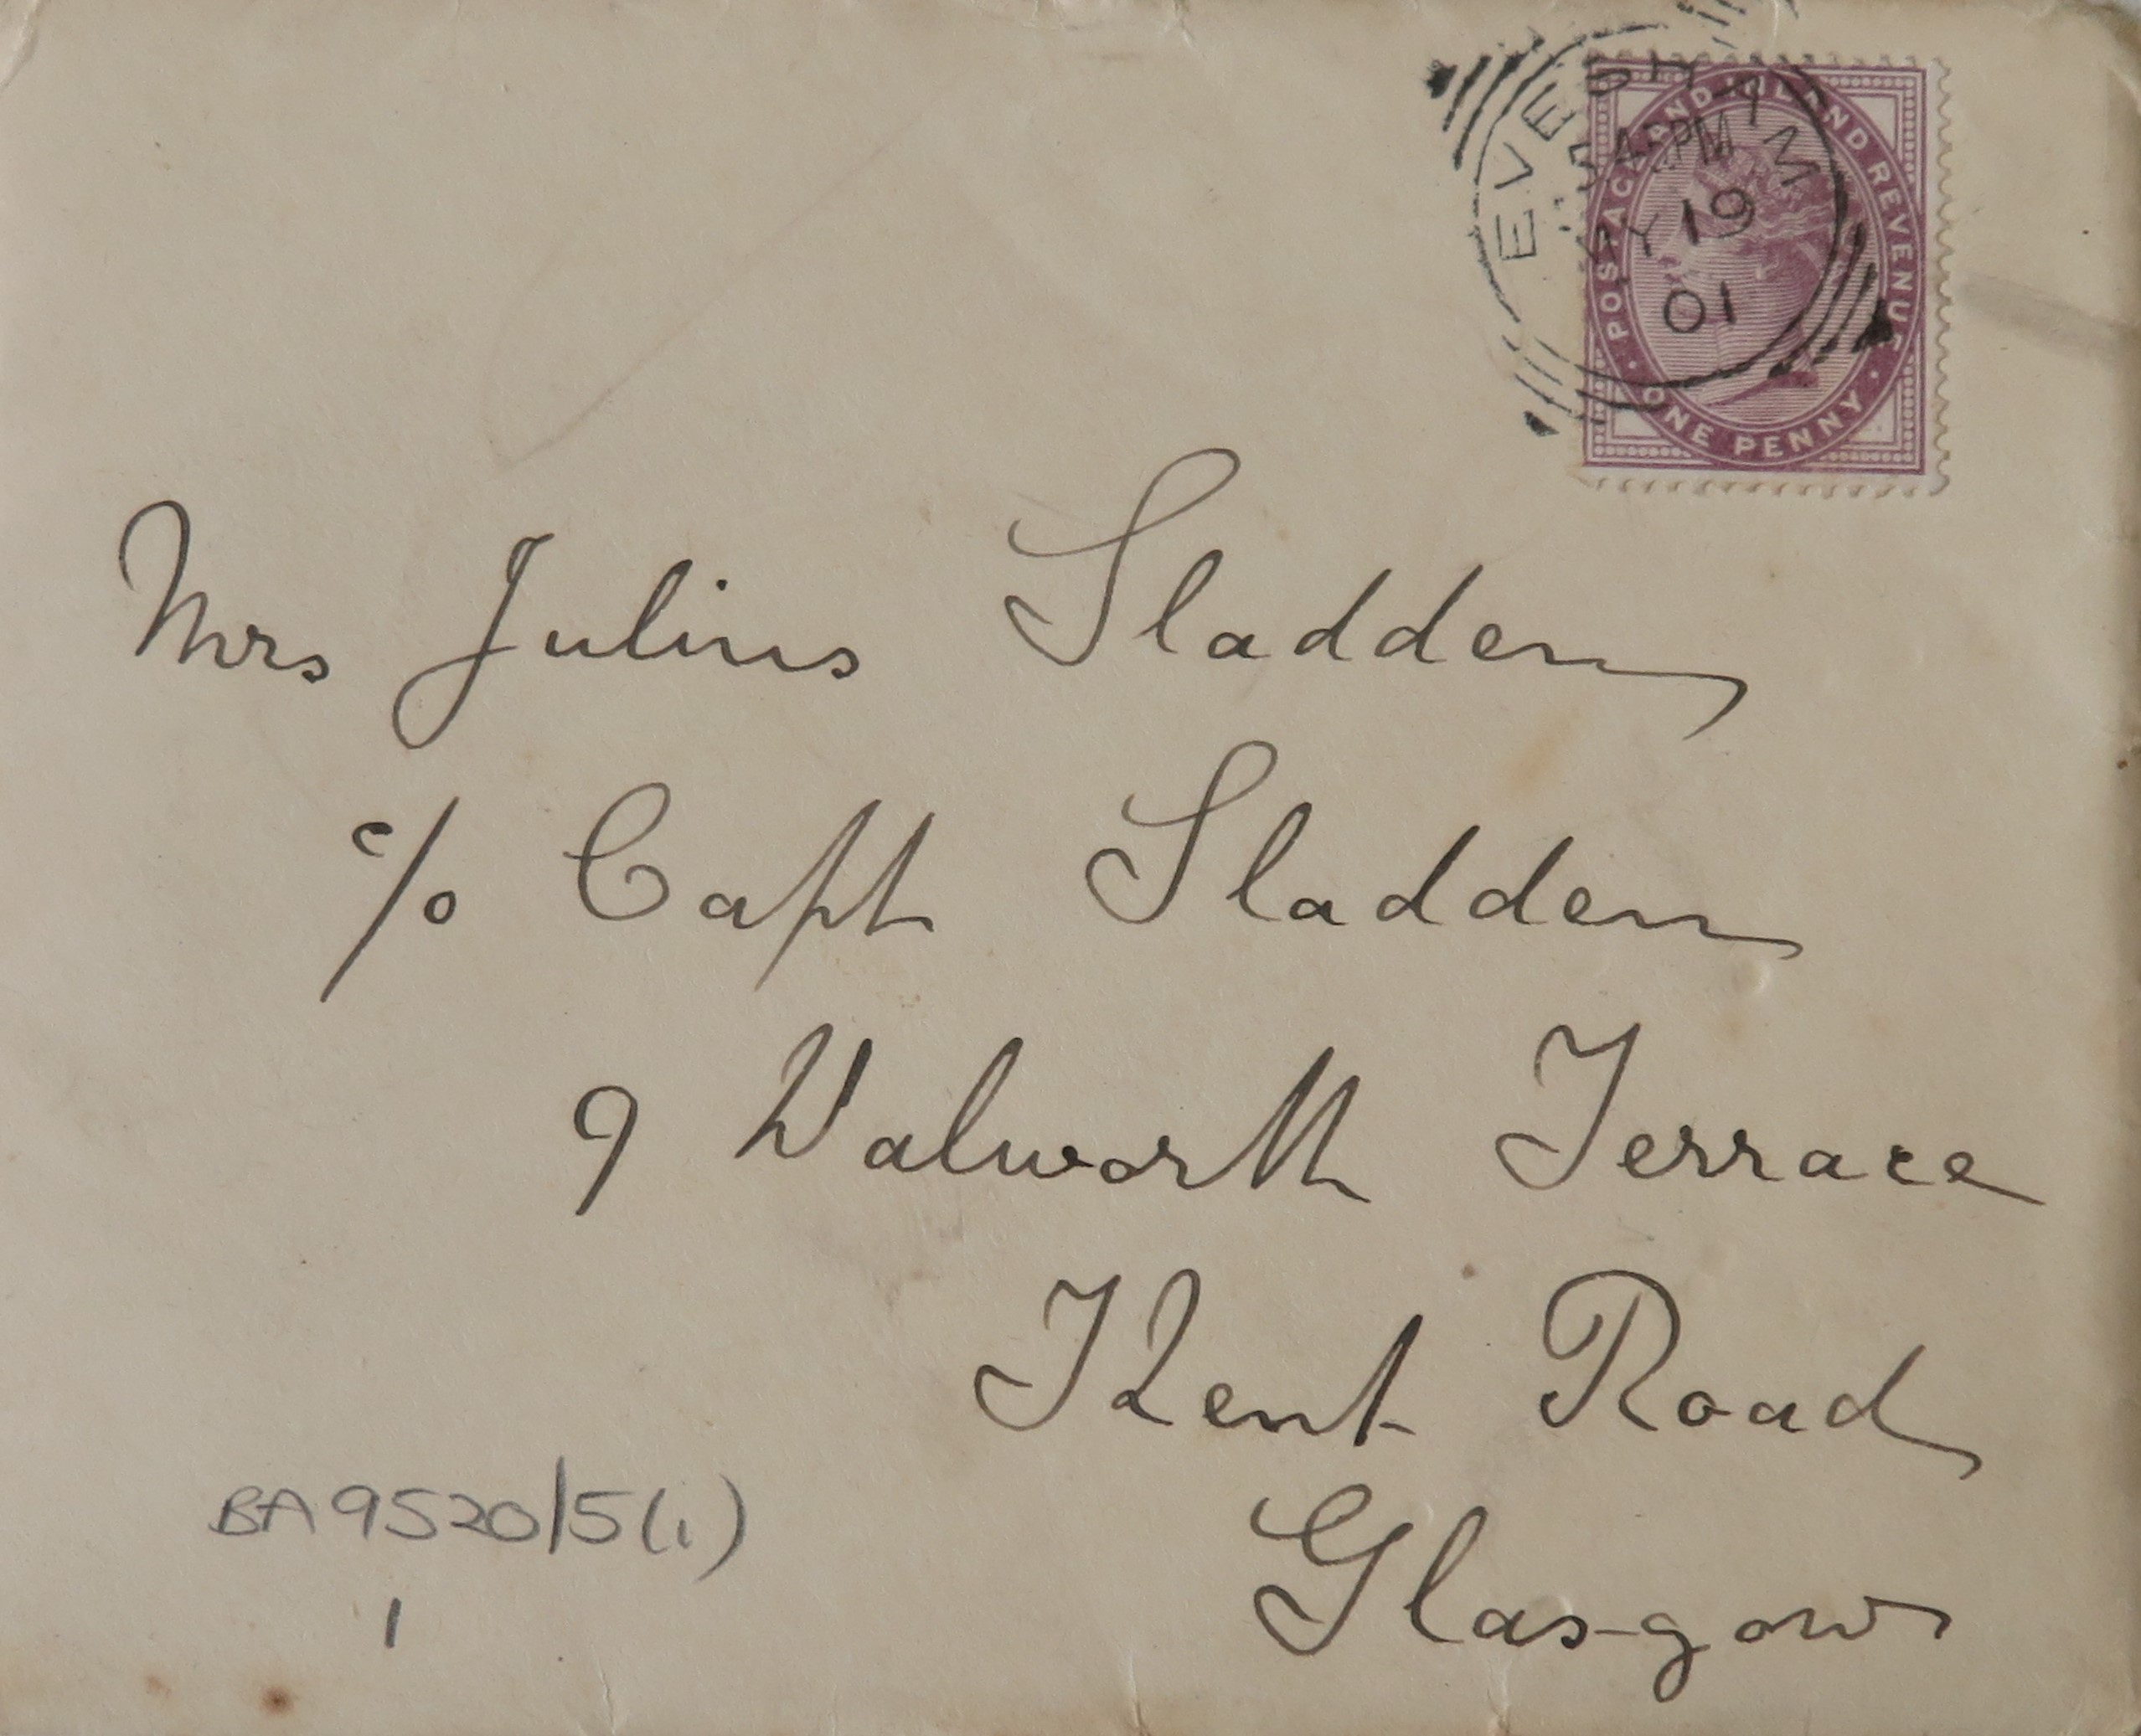 EVESHAM
45PM
MY 19
01
POSTAGE AND INLAND REVENUE
ONE PENNY
Mrs Julius Sladden
c/o Capt Sladden
9 Walworth Terrace
Kent Road
Glasgow
BA9520/5(i)
1